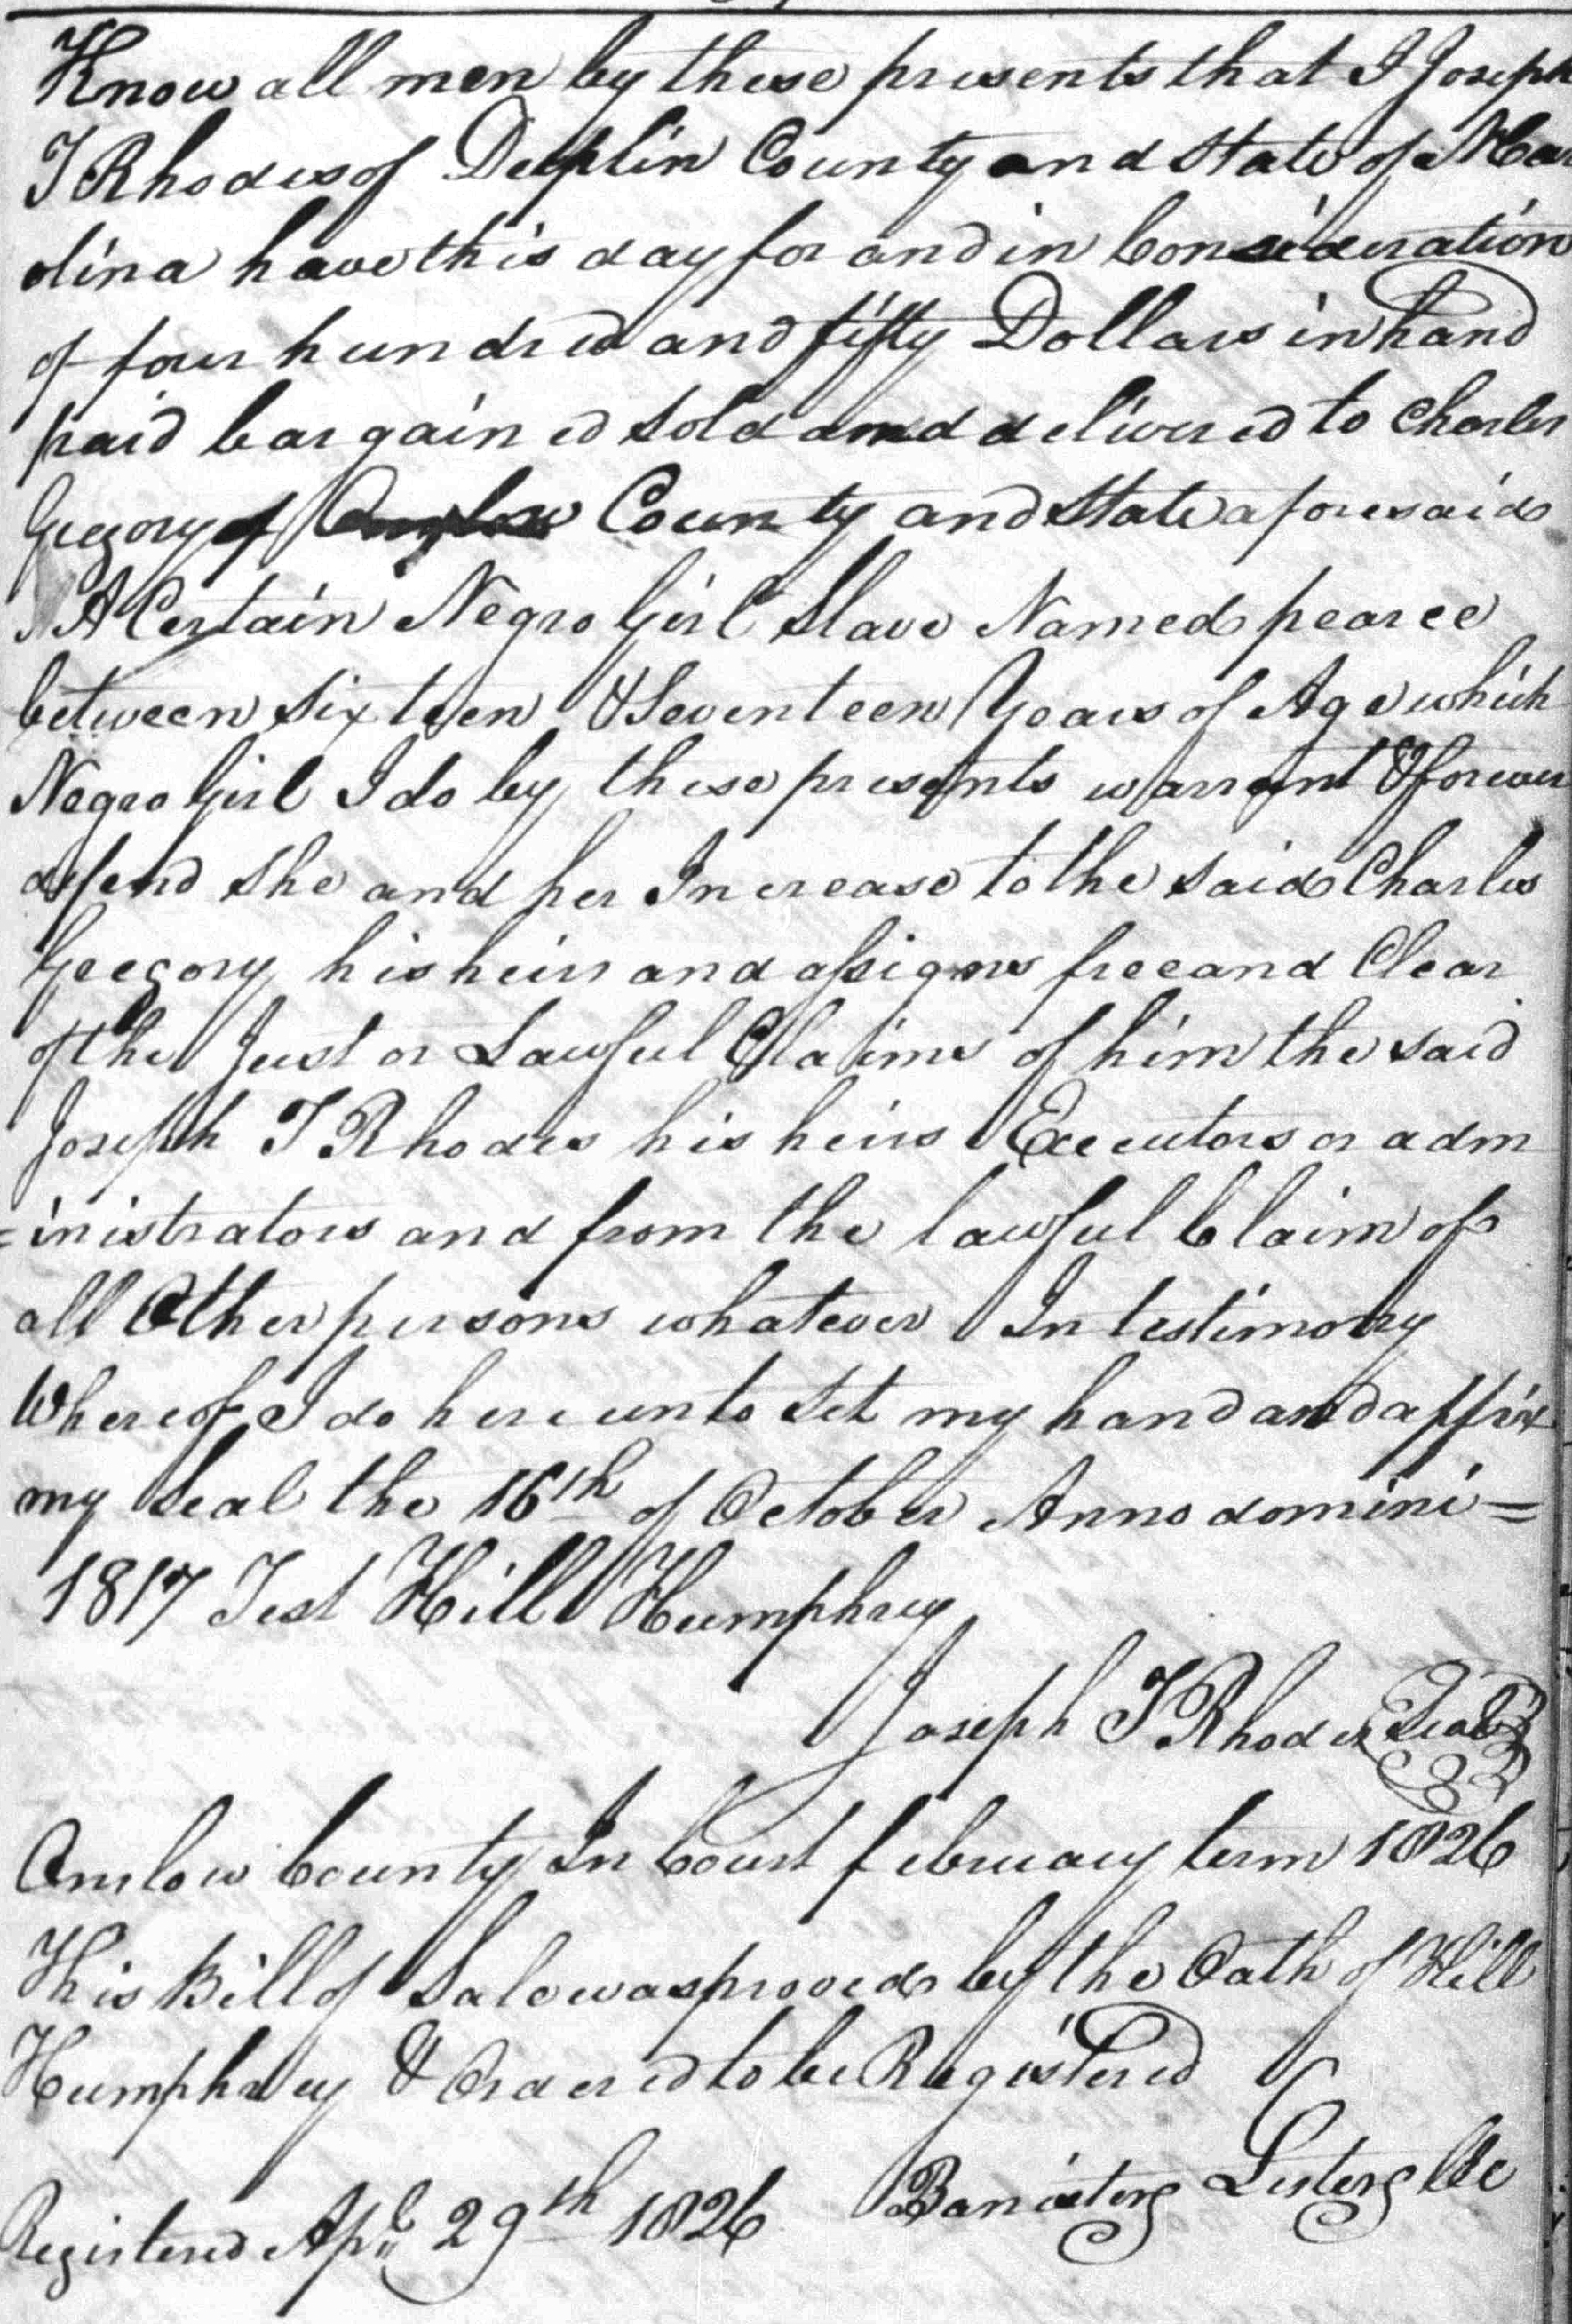 Know all men by these presents that I Joseph
T Rhodes of Duplin County and State of N Car
olina have this day for and in Consideration
of four hundred and fifty Dollars in hand
paid bargained sold and delivered to Charles
Gregory of Onslow County and State aforesaid
A Certain Negro Girl Slave Named pearce
between sixteen & Seventeen Years of Age which
Negro Girl I do by these presents warrant & forever
defend she and her Increase to the said Charles
Gregory his heirs and assigns free and Clear
of the Just or Lawful Claims of him the said
Joseph T Rhodes his heirs Executors or adm
=inistrators and from the lawful Claim of
all Other persons whatever In testimony
Whereof I do hereunto set my hand and affix
my seal the 16th of October Anno domini =
1817 Test Hill Humphrey
Joseph T Rhodes Seal
Onslow County In Court february term 1826
This Bill of Sale was proved by the Oath of Hill
Humphrey & Ordered to be Registered
Registered Apl 29th 1826 Banister Lester